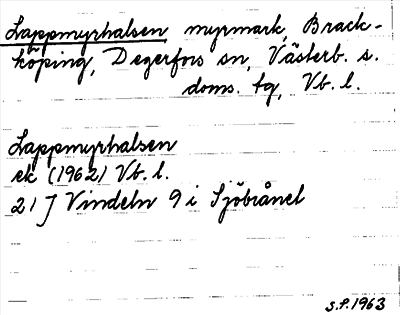 Lappmyrhalsen myrmark, Brack-
köping, Degerfors sn, Västerb. s.
doms. tg, Vb. l.
Lappmyrhalsen
ek (1962) Vb. l.
21 J Vindeln 9 i Sjöbrånet
S.F. 1963